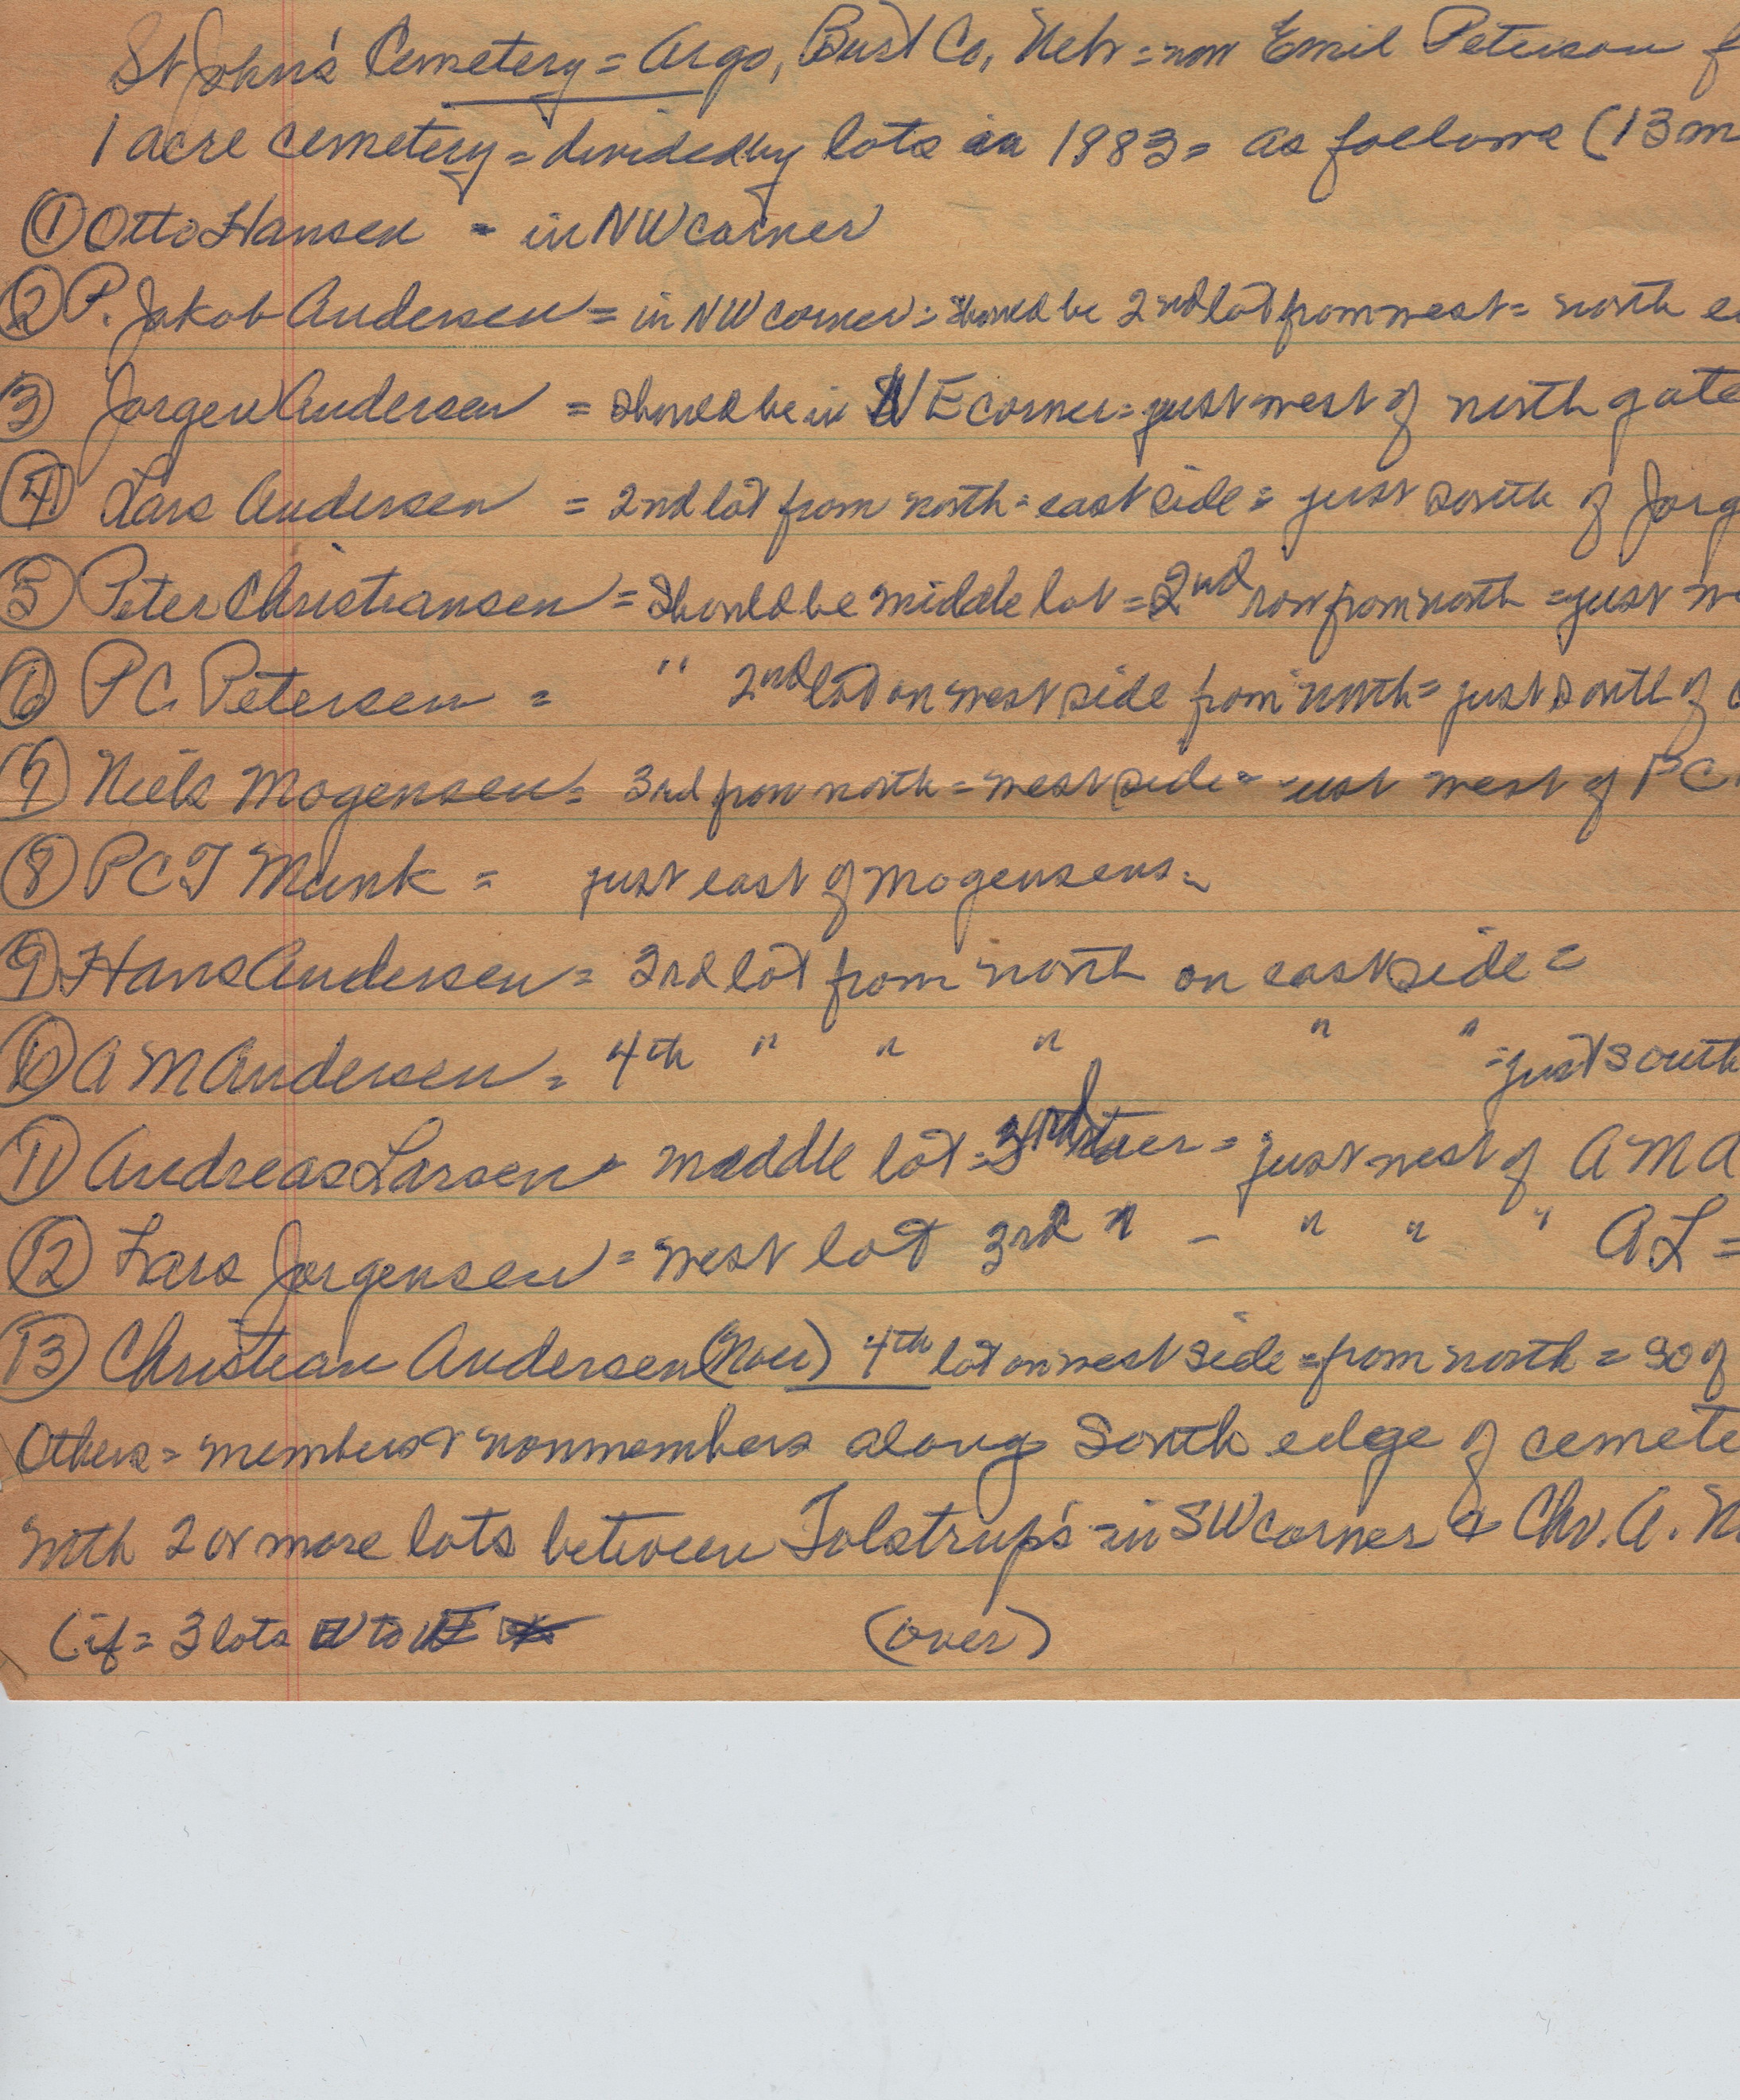 St John's Cemetery = Argo, Burt Co, Neb = now Emil Peterson f
1 acre cemetery = divided by lots in 1883 = as follows (13 m
① Otto Hansen - in NW corner
② P. Jakob Andersen = in NW corner = should be 2nd lot from west = north e
③ Jorgen Andersen = should be in NE corner = just west of north gate
④ Lars Andersen = 2nd lot from north = east side = just south of Jorg
⑤ Peter Christiansen = should be middle lot = 2nd row from north = just w
⑥ P C. Petersen = " 2nd lot on west side from north = just south of
⑦ Niels Mogensen = 3rd from north = west side = just west of P C
⑧ P C T Munk = just east of Mogensens =
⑨ Hans Andersen = 3rd lot from north on east side =
⑩ A M Andersen = 4th " " " " " = just south
⑪ Andreas Larsen = middle lot = 3rd tier = just west of A M A
⑫ Lars Jorgensen = west lot 3rd " - " " " A L =
⑬ Christian Andersen 4th lot on west side = from north = so of
Others = members & nonmembers along South edge of cemete
with 2 or more lots between Tolstrup's = in SW corner & Chr. A. N
(if = 3 lots to (over)